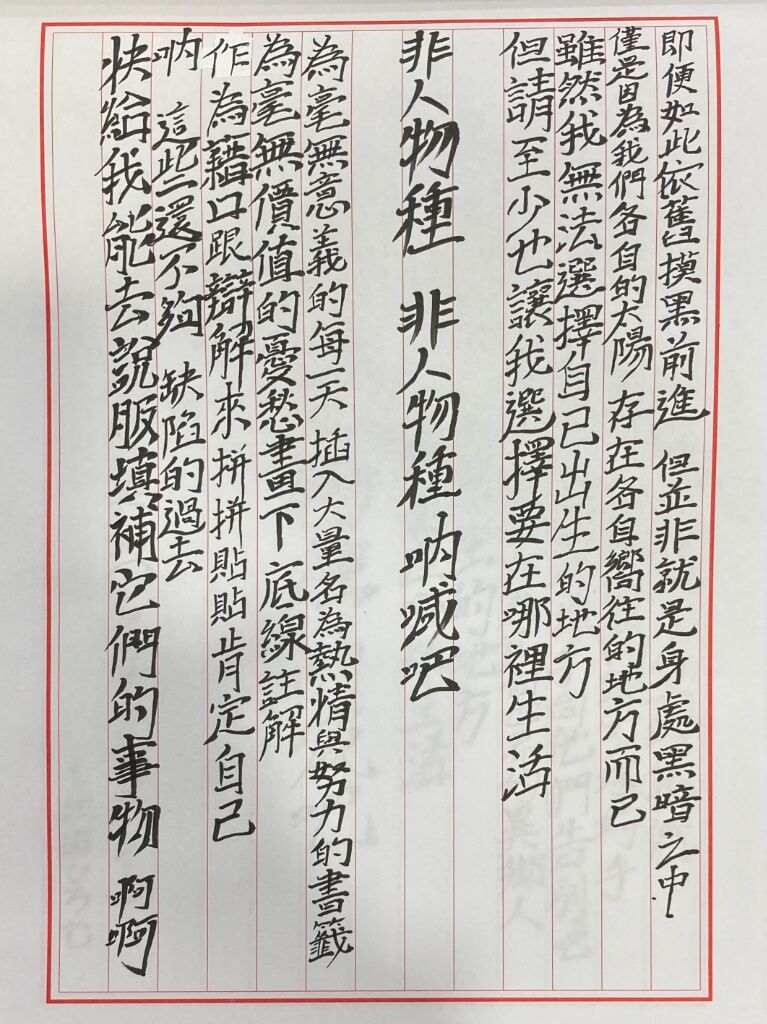 即便如此依舊摸黑前進 但並非就是身處黑暗之中
僅是因為我們各自的太陽 存在各自嚮往的地方而已
雖然我無法選擇自己出生的地方
但請至少也讓我選擇要在哪裡生活
非人物種 非人物種 吶喊吧
為毫無意義的每一天 插入大量名為熱情與努力的書籤
為毫無價值的憂愁畫下底線註解
作為藉口跟辯解來拼拼貼貼肯定自己
吶 這些還不夠 缺陷的過去
快給我能去說服填補它們的事物 啊啊